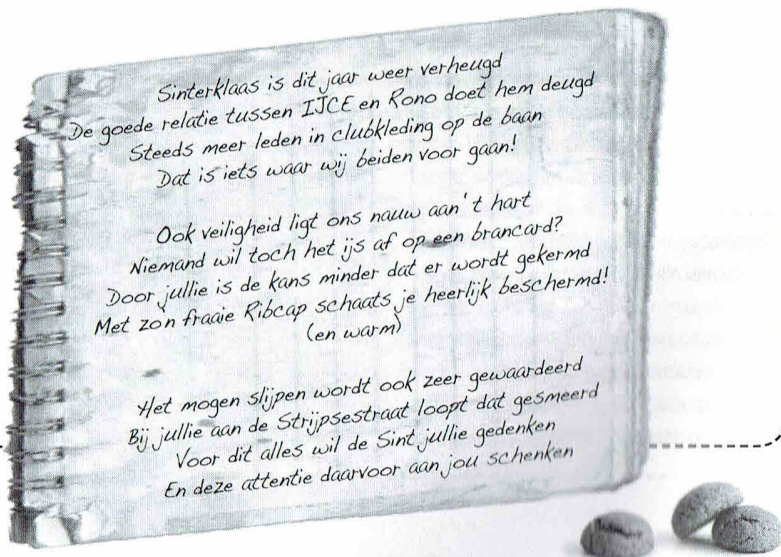 Sinterklaas is dit jaar weer verheugd
De goede relatie tussen IJCE en Rono doet hem deugd
Steeds meer leden in clubkleding op de baan
Dat is iets waar wij beiden voor gaan!
Ook veiligheid ligt ons nauw aan 't hart
Niemand wil toch het ijs af op een brancard?
Door jullie is de kans minder dat er wordt gekermd
Met zo'n fraaie Ribcap schaats je heerlijk beschermd!
(en warm)
Het mogen slijpen wordt ook zeer gewaardeerd
Bij jullie aan de Strijpsestraat loopt dat gesmeerd
Voor dit alles wil de Sint jullie gedenken
En deze attentie daarvoor aan jou schenken